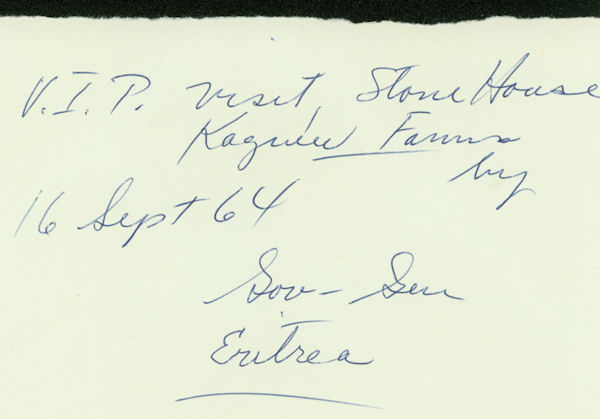 V.I.P. visit, Stone House
Kagnew Farms
by
16 Sept 64
Gov- Gen
Eritrea